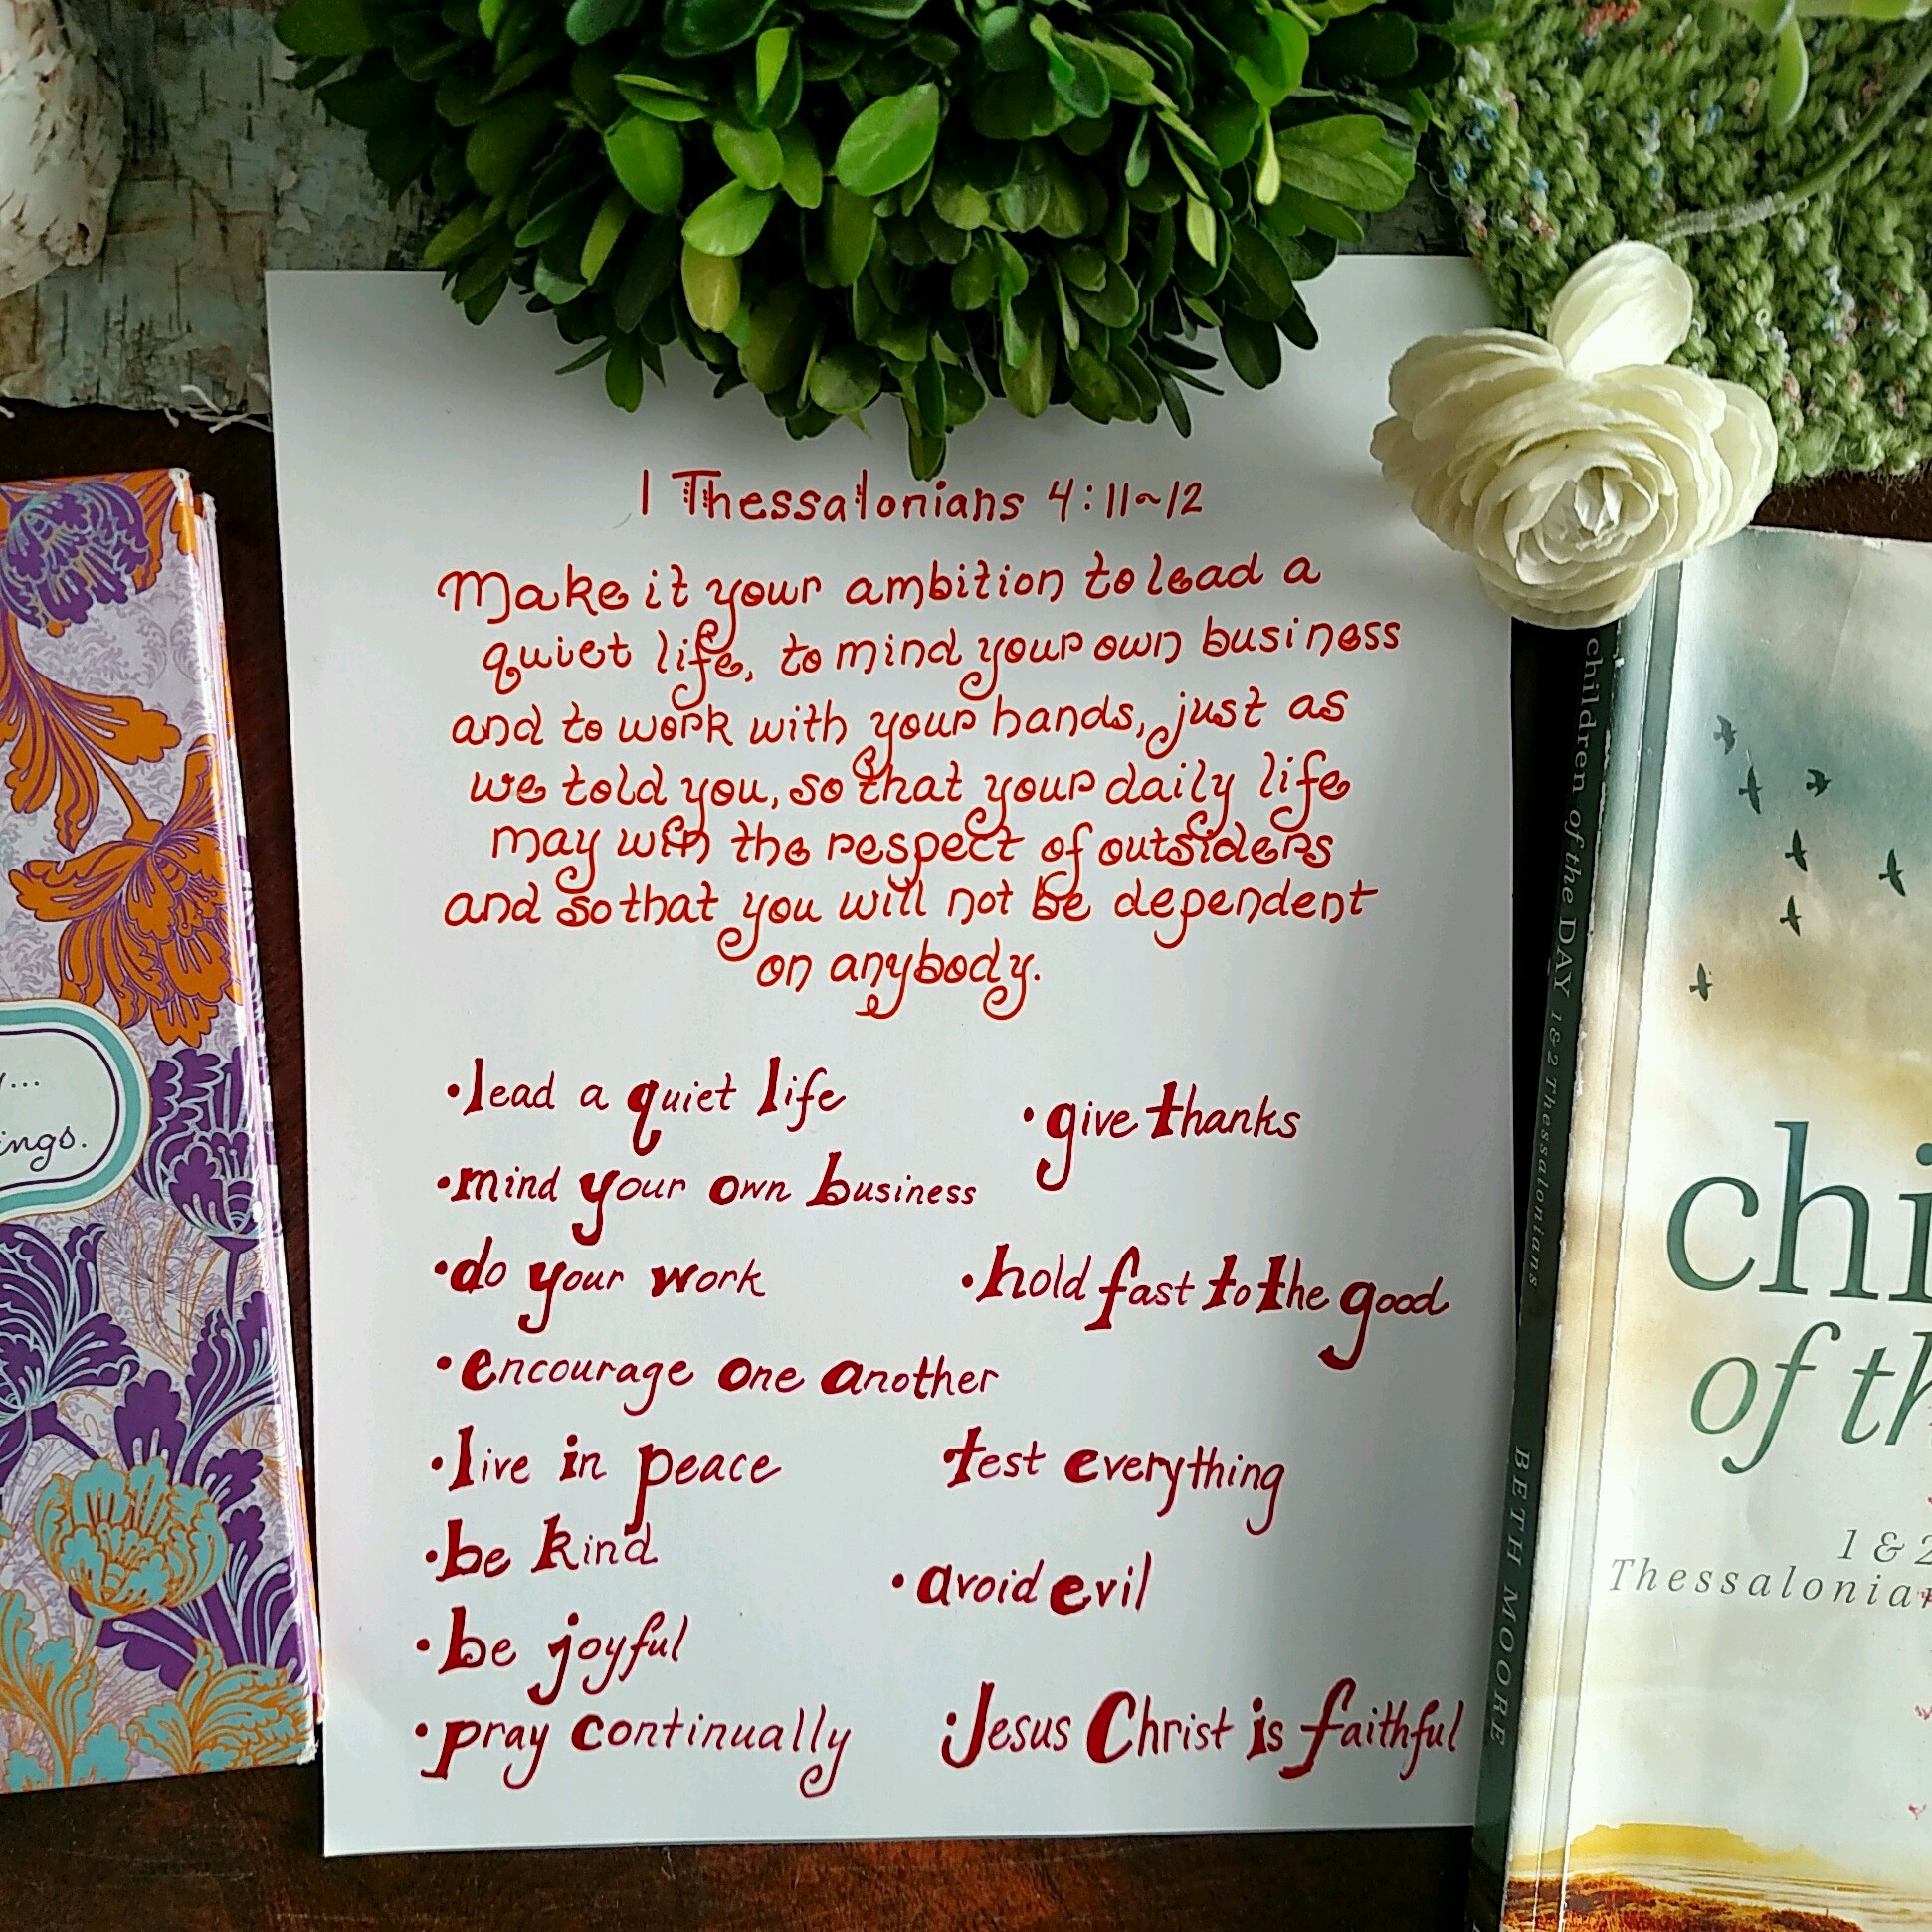 1 Thessalonians 4:11~12
Make it your ambition to lead a
quiet life, to mind your own business
and to work with your hands, just as
we told you, so that your daily life
may win the respect of outsiders
and so that you will not be dependent
on anybody.
•lead a quiet life
•mind your own business
•do your work
•encourage one another
•live in peace
•be kind
•be joyful
•pray continually
•give thanks
•hold fast to the good
•test everything
•avoid evil
•Jesus Christ is faithful
ings.
children of the DAY 1 & 2 Thessalonians
BETH MOORE
chi
of th
1 & 2
Thessalonian